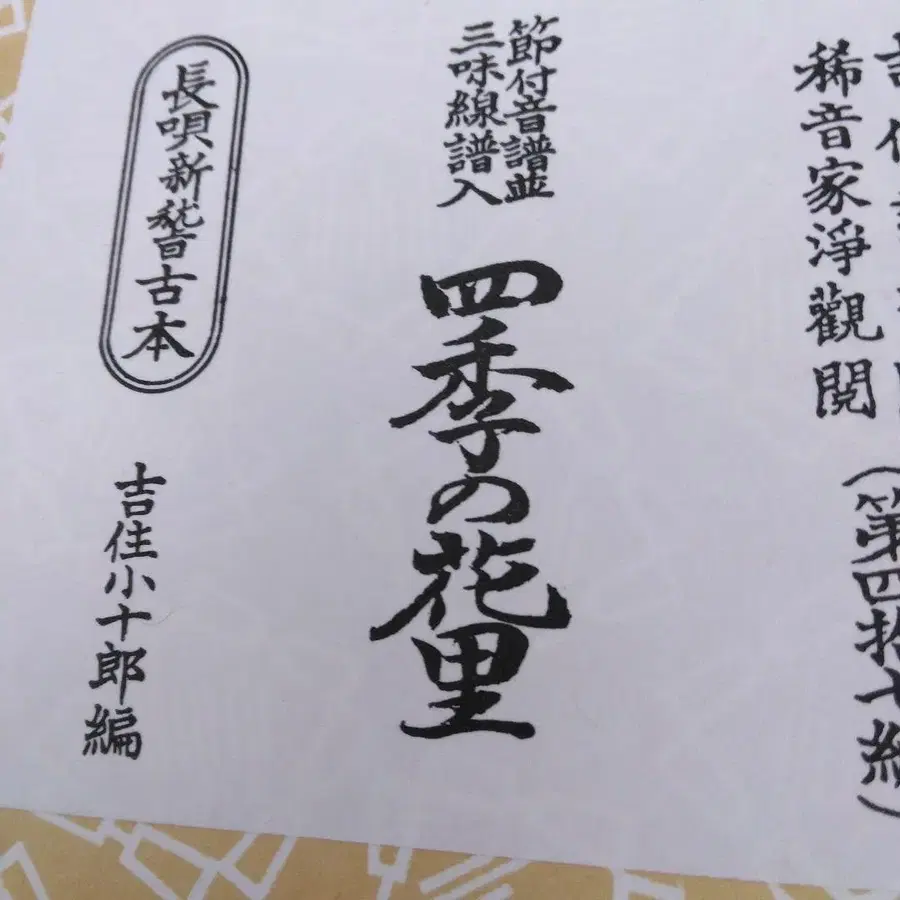 稀音家淨觀閲
(第四拾七編)
節付音譜並
三味線譜入
四季の花里
長唄新稽古本
吉住小十郎編